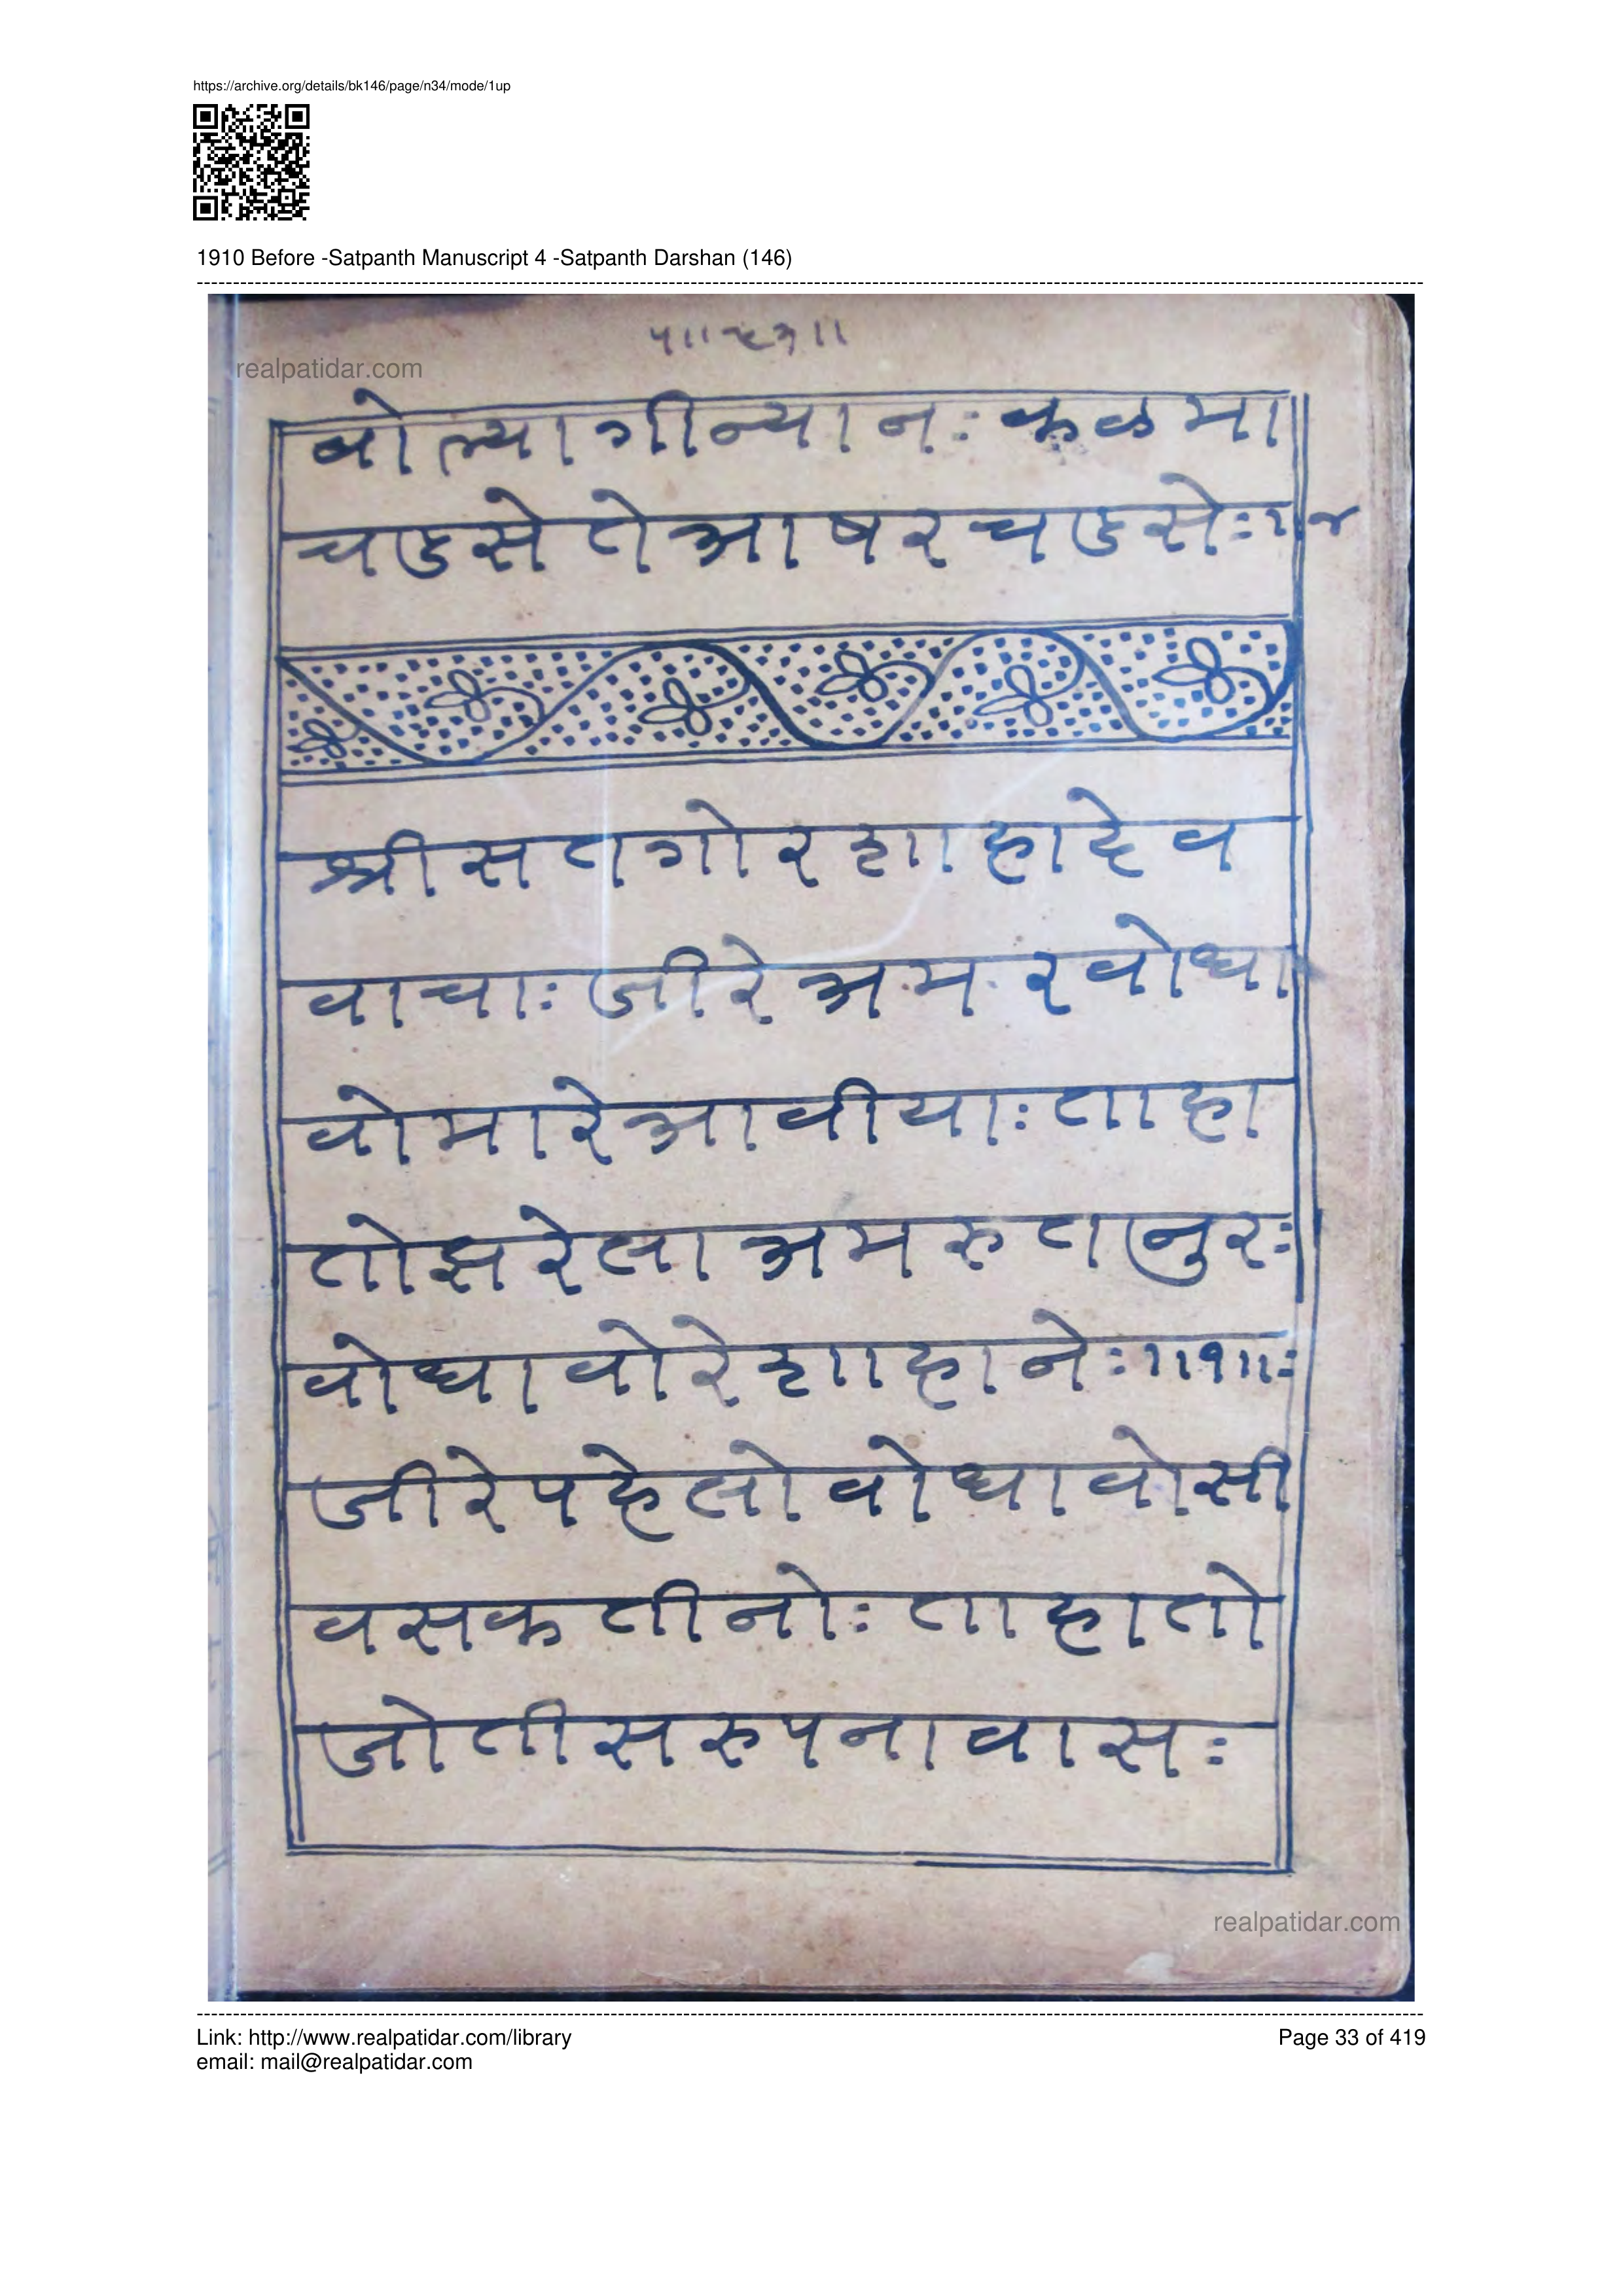 https://archive.org/details/bk146/page/n34/mode/1up
1910 Before -Satpanth Manuscript 4 -Satpanth Darshan (146)
realpatidar.com
बोल्या गीन्यानः कळमा
चडसे ते आषर चडसेः
श्री सतगोर शाहादेव
वाचाः जीरे अमर वोधा
वो मारे आवीयाः ताहा
तो झरेला अमरुत नुरः
वोधावो रे शाहानेः॥१॥ः
जीरे पहेलो वोधावो सी
वसकतीनोः ताहा तो
जोती सरुपना वासः
realpatidar.com
Link: http://www.realpatidar.com/library
Page 33 of 419
email: mail@realpatidar.com